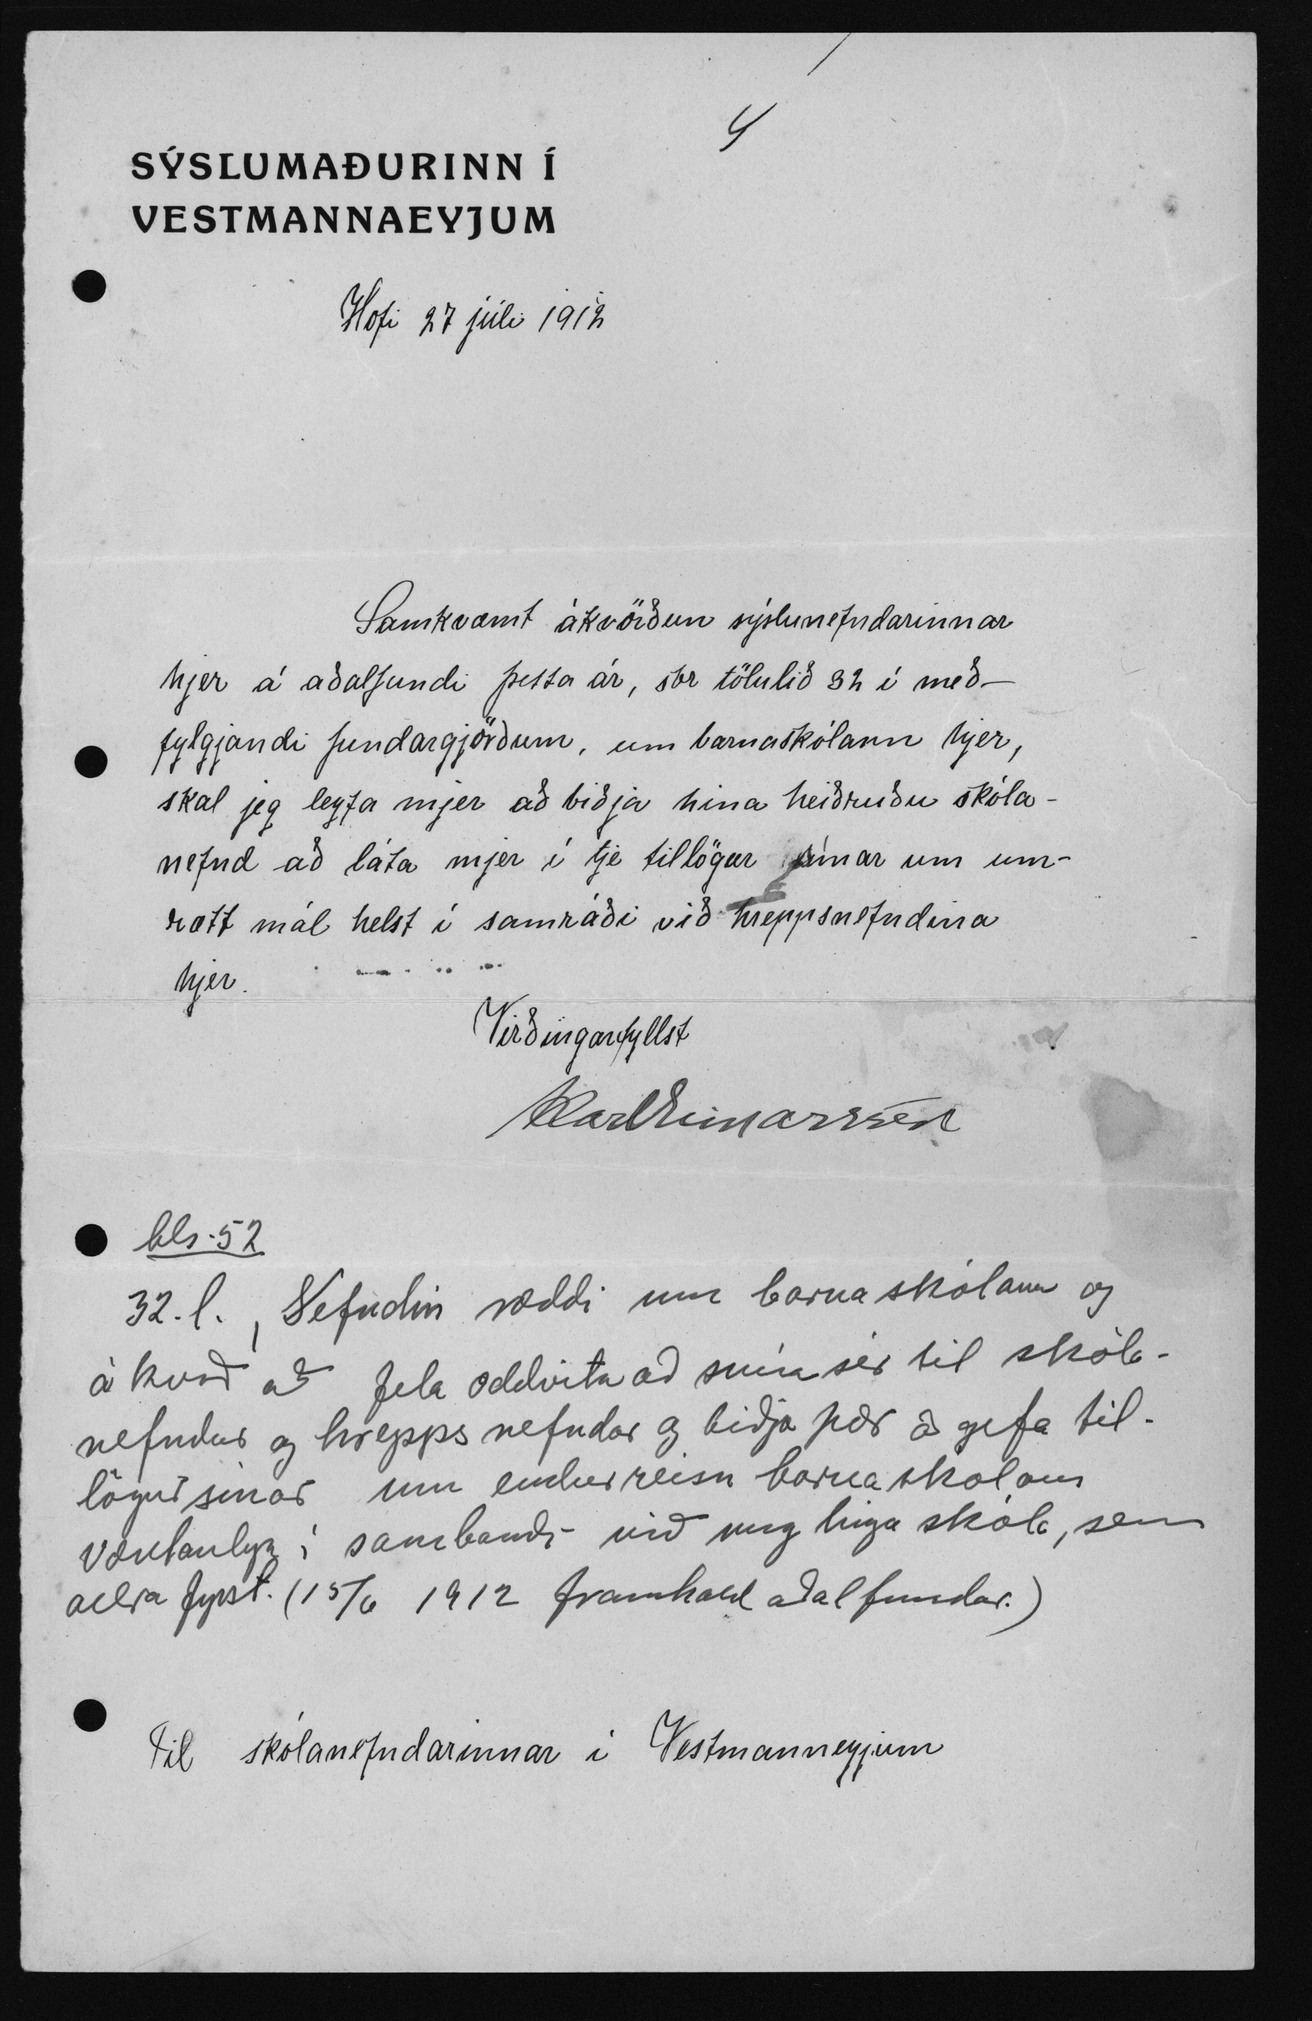 4
SÝSLUMAÐURINN Í
VESTMANNAEYJUM
Hofi 27 júli 1912
Samkvæmt ákvörðun sýslunefndarinnar
hjer á aðalfundi þetta ár, sbr tölulið 32 í með-
fylgjandi fundargjörðum, um barnaskólann hjer,
skal jeg leyfa mjer að biðja hina heiðruðu skóla-
nefnd að láta mjer í tje tillögur sínar um um-
rætt mál helst í samráði við hreppsnefndina
hjer.
Virðingarfyllst
Karl Einarsson
bls. 52
32. l., Nefndin ræddi um barnaskólann og
ákvað að fela oddvita að snúa sér til skóla-
nefndar og hreppsnefndar og biðja þær að gefa til-
lögur sínar um endurreisn barnaskólans
væntanlega í sambandi við unglingaskóla, sem
allra fyrst. (15/6 1912 framhald aðalfundar.)
Til skólanefndarinnar í Vestmanneyjum